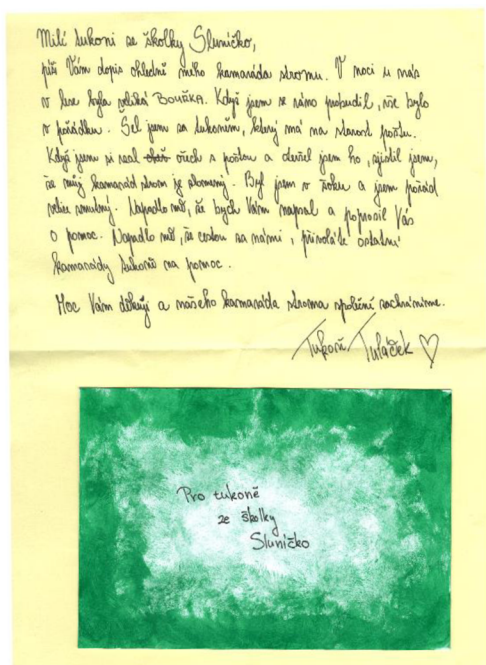 Milí tukoni ze školky Sluníčko,
píši Vám dopis ohledně mého kamaráda stromu. V noci u nás
v lese byla veliká BOUŘKA. Když jsem se ráno probudil, vše bylo
v pořádku. Šel jsem za tukoněm, který má na starost poštu.
Když jsem si vzal ořech s poštou a otevřel jsem ho, zjistil jsem,
že můj kamarád strom je zlomený. Byl jsem v šoku a jsem pořád
velice smutný. Napadlo mě, že bych Vám napsal a poprosil Vás
o pomoc. Napadlo mě, že cestou za námi, přivoláte ostatní
kamarády tukoně na pomoc.
Moc Vám děkuji a našeho kamaráda stroma společně zachráníme.
Tukoň Tuláček
Pro tukoně
ze školky
Sluníčko